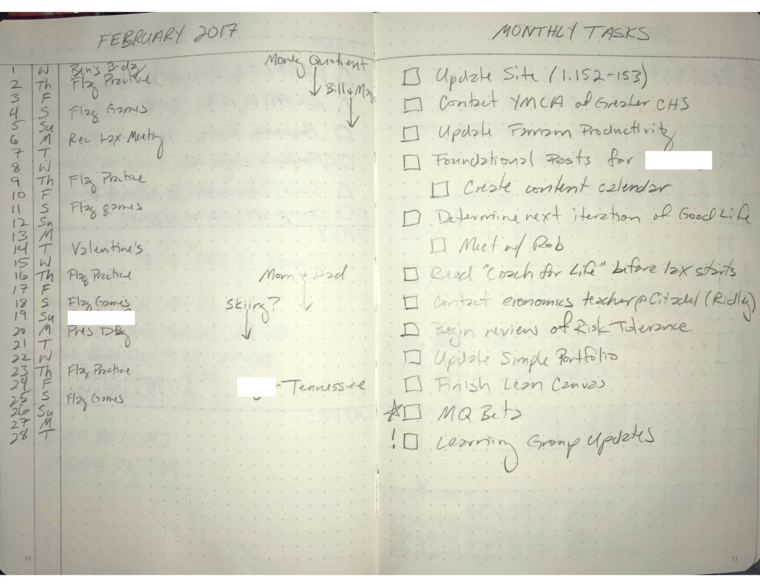 FEBRUARY 2017
Money Quotient
Bill + Mag
1 W Ben's B-day
2 Th Flag Practice
3 F
4 S Flag Games
5 Su
6 M Rec Lax Meeting
7 T
8 W
9 Th Flag Practice
10 F
11 S Flag games
12 Su
13 M
14 T Valentine's
15 W
16 Th Flag Practice
Mom + Dad
17 F
18 S Flag Games
Skiing?
19 Su
20 M Pres Day
21 T
22 W
23 Th Flag Practice
24 F
- Tennessee
25 S Flag Games
26 Su
27 M
28 T
10
MONTHLY TASKS
Update Site (1.152-153)
Contact YMCA of Greater CHS
Update Farnam Productivity
Foundational Posts for
Create content calendar
Determine next iteration of Good Life
Meet w/ Rob
Read "Coach for Life" before lax starts
Contact economics teacher @ Citadel (Ridley)
Begin review of Risk Tolerance
Update Simple Portfolio
Finish Lean Canvas
MQ Beta
! Learning Group Updates
11